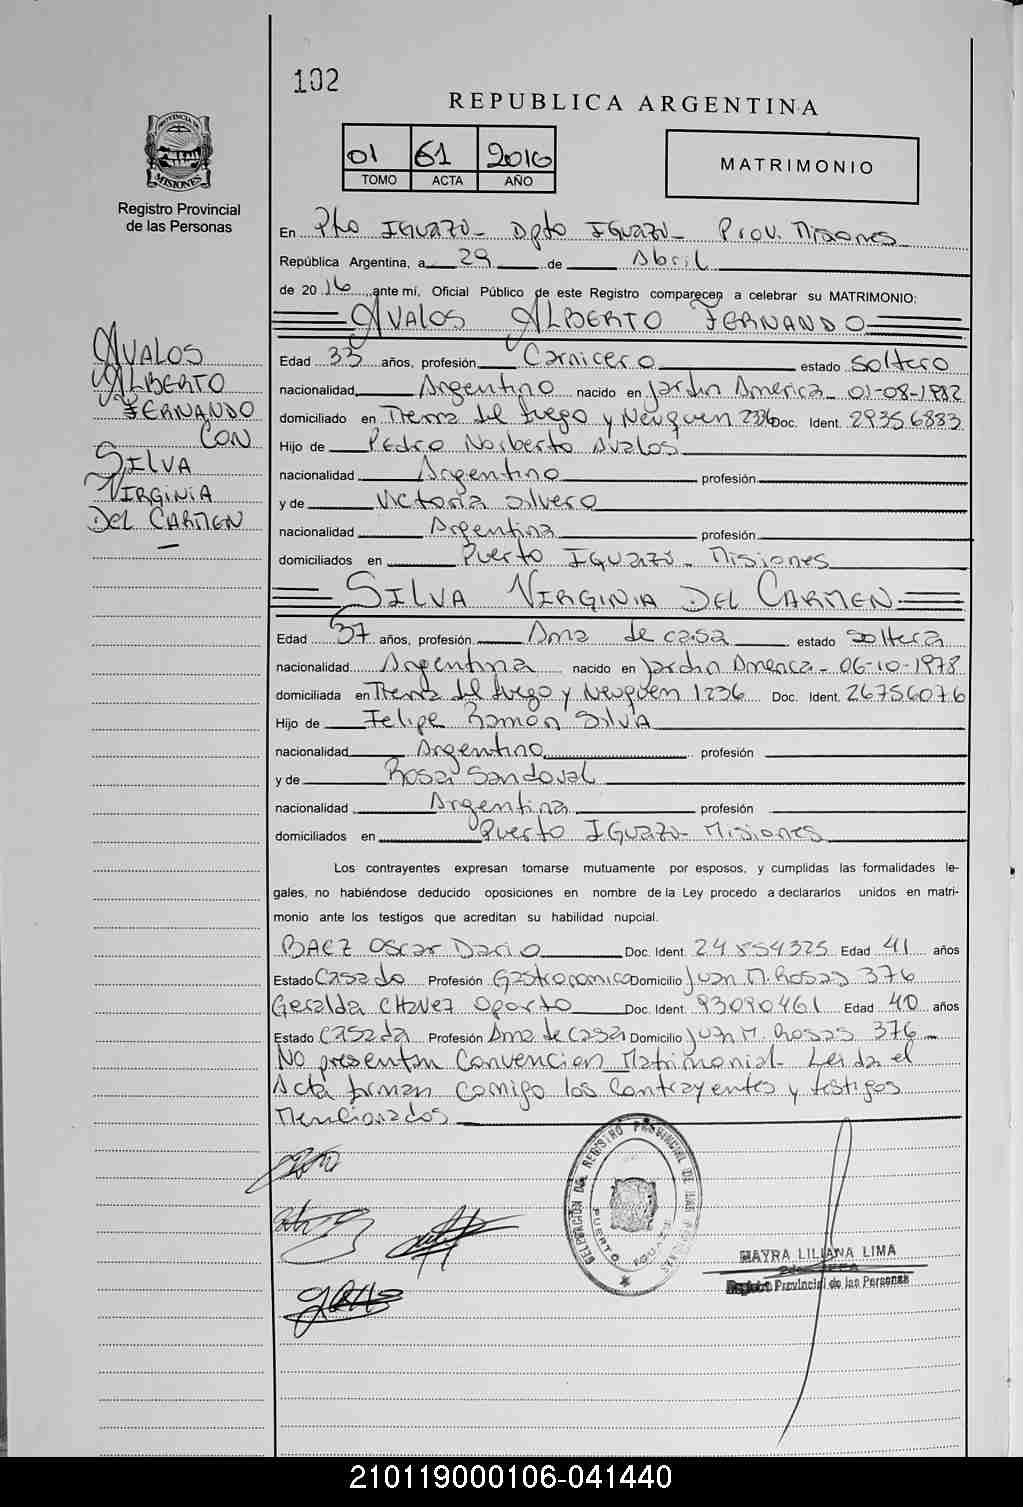 102
REPUBLICA ARGENTINA
01 61 2016
TOMO ACTA AÑO
MATRIMONIO
PROVINCIA DE MISIONES
Registro Provincial
de las Personas
En Pto Iguazú - Dpto Iguazú - Prov. Misiones
República Argentina, a 29 de Abril
de 2016 ante mí, Oficial Público de este Registro comparecen a celebrar su MATRIMONIO:
AVALOS ALBERTO FERNANDO
AVALOS
ALBERTO
FERNANDO
CON
SILVA
VIRGINIA
DEL CARMEN
Edad 33 años, profesión Carnicero estado soltero
nacionalidad Argentino nacido en Jardin America - 01-08-1982
domiciliado en Tierra del fuego y Neuquen 2336 Doc. Ident. 29356833
Hijo de Pedro Norberto Avalos
nacionalidad Argentino profesión
y de Victoria Silvero
nacionalidad Argentina profesión
domiciliados en Puerto Iguazú - Misiones
SILVA VIRGINIA DEL CARMEN
Edad 37 años, profesión Ama de casa estado soltera
nacionalidad Argentina nacido en Jardin America - 06-10-1978
domiciliada en Tierra del fuego y Neuquen 1236 Doc. Ident. 26756076
Hijo de Felipe Ramon Silva
nacionalidad Argentino profesión
y de Rosa Sandoval
nacionalidad Argentina profesión
domiciliados en Puerto Iguazú - Misiones
Los contrayentes expresan tomarse mutuamente por esposos, y cumplidas las formalidades le-
gales, no habiéndose deducido oposiciones en nombre de la Ley procedo a declararlos unidos en matri-
monio ante los testigos que acreditan su habilidad nupcial.
BAEZ Oscar Dario Doc. Ident. 24854325 Edad 41 años
Estado Casado Profesión Gastronomico Domicilio Juan M. Rosas 376
Geralda Chavez Oporto Doc. Ident. 93090461 Edad 40 años
Estado Casada Profesión Ama de casa Domicilio Juan M. Rosas 376
No presentan Convencion Matrimonial. Leida el
Acta firman comigo los Contrayentes y testigos
Mencionados
REGISTRO PROVINCIAL DE LAS PERSONAS
PUERTO IGUAZU
MAYRA LILIANA LIMA
Registro Provincial de las Personas
210119000106-041440